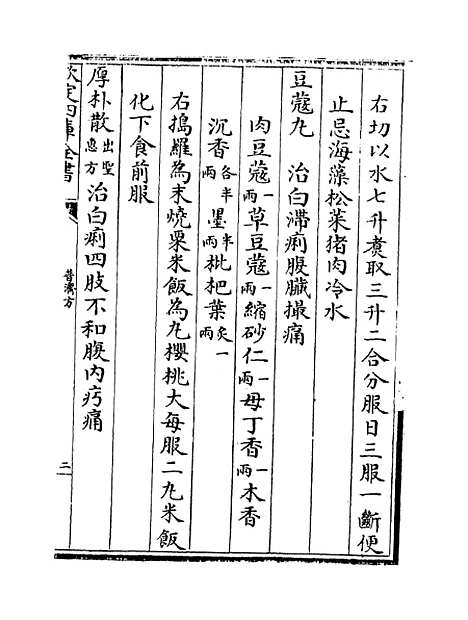 右切以水七升煑取三升二合分服日三服一斷便
止忌海藻松菜猪肉冷水
豆蔻丸　治白滯痢腹臟撮痛
肉豆蔻一兩草豆蔻一兩縮砂仁一兩母丁香一兩木香
沉香各半兩墨半兩枇杷葉炙一兩
右搗羅為末燒粟米飯為丸櫻桃大每服二丸米飯
化下食前服
厚朴散出聖惠方治白痢四肢不和腹内疞痛
欽定四庫全書
普濟方
二